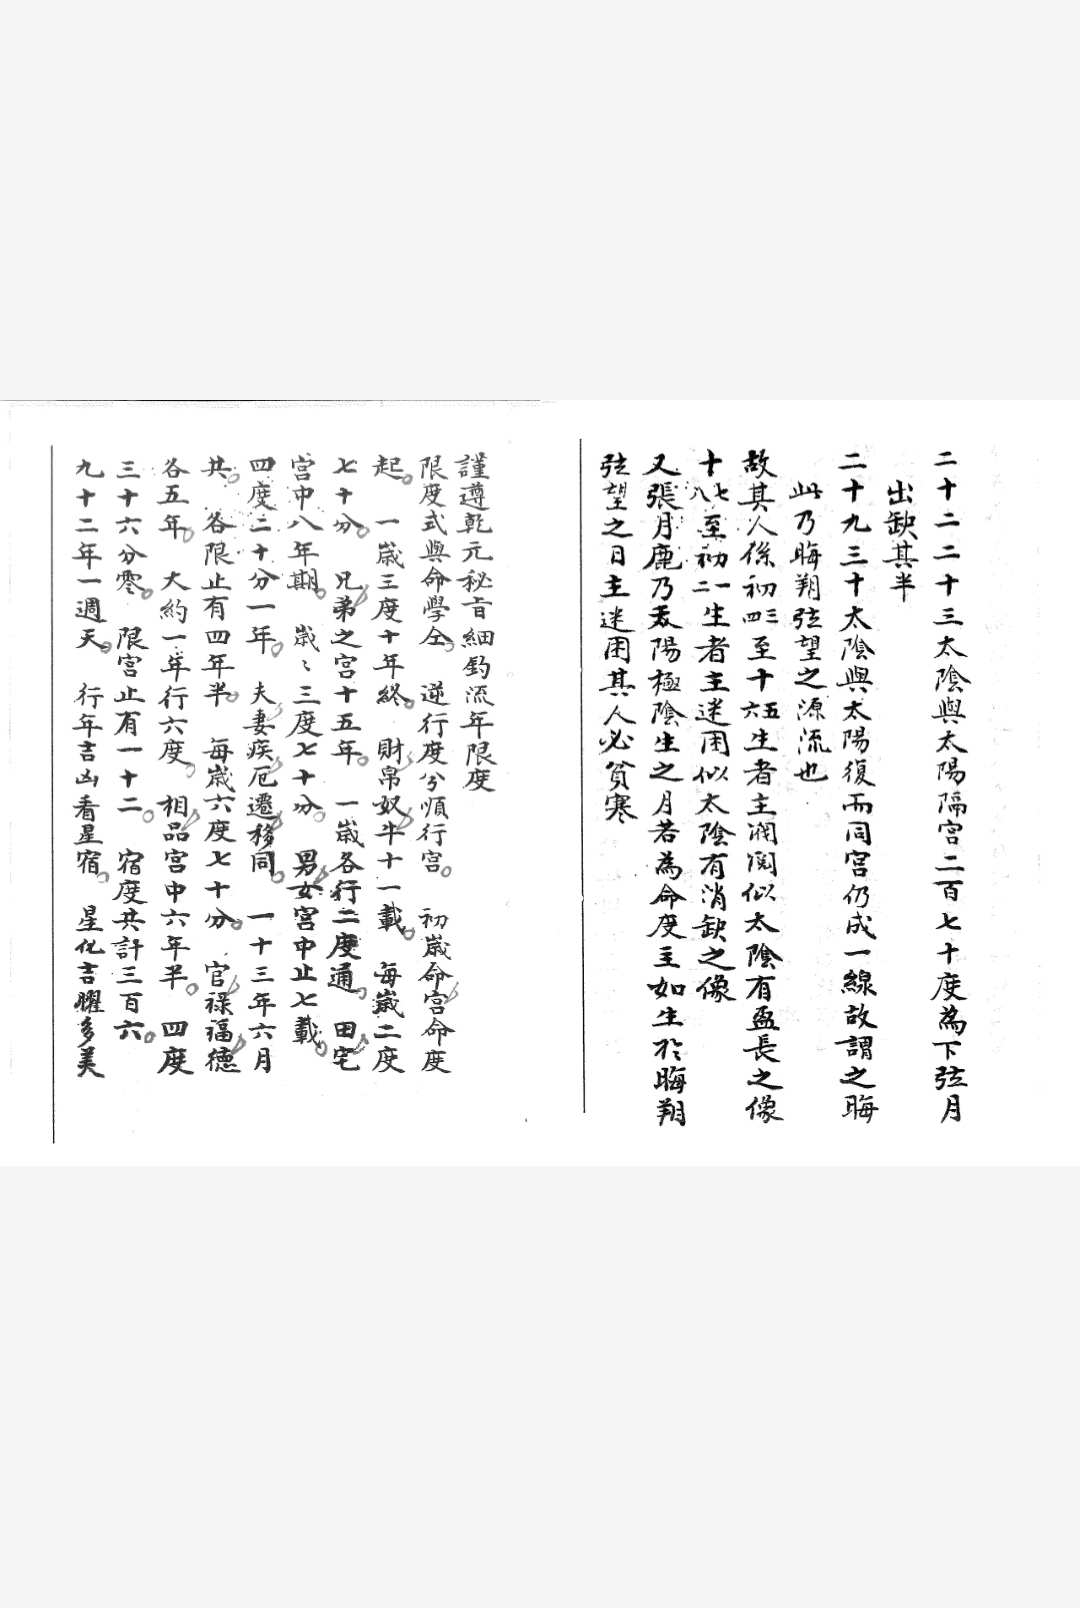 二十二二十三太陰與太陽隔宮二百七十度為下弦月
出缺其半
二十九三十太陰與太陽復而同宮仍成一線故謂之晦
此乃晦翔弦望之源流也
故其人係初三四至十五六生者主潤闊似太陰有盈長之像
十七八至初一二生者主迷困似太陰有消缺之像
又張月鹿乃太陽極陰生之月若為命度主如生於晦翔
弦望之日主迷困其人必貧寒
謹遵乾元秘旨細鈞流年限度
限度式與命學仝 逆行度兮順行宮 初嵗命宮命度
起 一嵗三度十年終 財帛奴牛十一載 每嵗二度
七十分 兄弟之宮十五年 一嵗各行二度通 田宅
宮中八年期 嵗〻三度七十分 男女宮中止七載
四度二十分一年 夫妻疾厄遷移同 一十三年六月
共 各限止有四年半 每嵗六度七十分 官祿福德
各五年 大約一年行六度 相品宮中六年半 四度
三十六分零 限宮止有一十二 宿度共計三百六
九十二年一週天 行年吉凶看星宿 星化吉曜多美